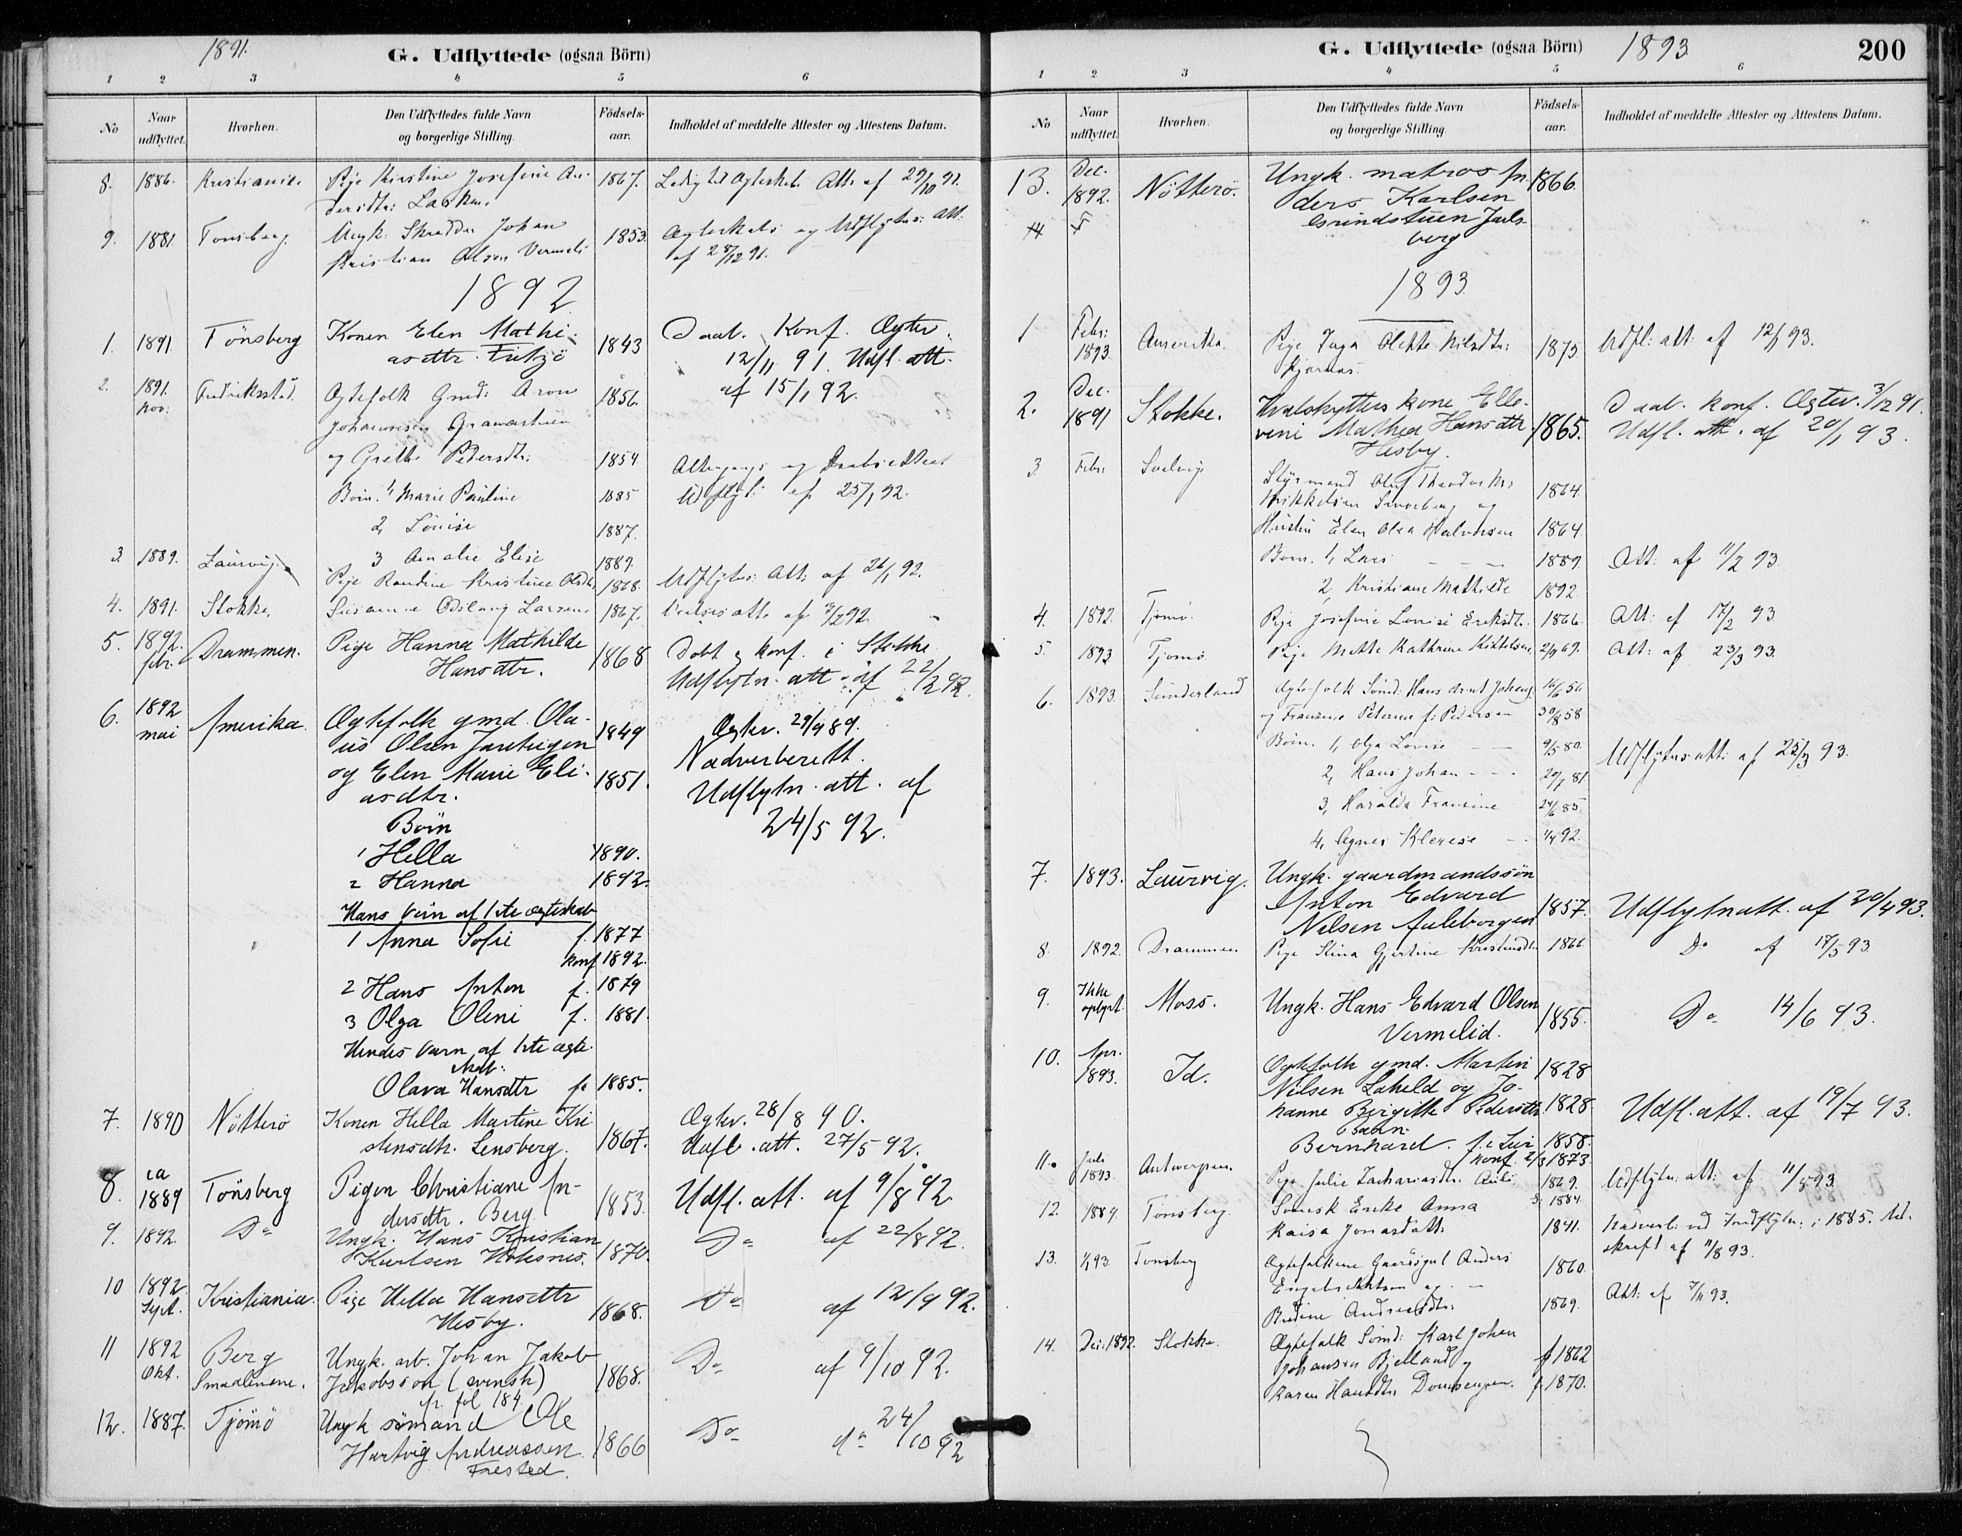 1891.
G. Udflyttede (ogsaa Börn)
1 2 3 4 5 6
No
Naar udflyttet.
Hvorhen.
Den Udflyttedes fulde Navn og borgerlige Stilling.
Födsels-aar.
Indholdet af meddelte Attester og Attestens Datum.
8. 1886. Kristiania. Pige Kirstine Josefine An- 1867. Ledig til Ægteskab Att. af 29/10 91.
dersdtr.
9. 1881 Tönsberg. Ungk. Skrædder Johan 1853. Ægteskabs og Udflytn: Att:
Kristian Olsen Vermeli af 28/12 91.
1892
1. 1891 Tönsberg Konen Elen Mathi- 1843 Daab. Konf. Ægtev.
asdtr. Fritzö 12/11 91. Udfl. att.
af 15/1 92.
2. 1891. Nov: Fredriksstad. Ægtefolk Gmd: Aron 1856.
Johannesen
og Grethe Pedersdtr: 1854 Udflytn: af 25/1 92.
Börn. 1, Marie Pauline 1885
2, Louise 1887.
3 Amalie Elise 1889.
3. 1889. Laurvig. Pige Randine Kristine Olsdtr. 1868. Udflytn: Att: af 26/1 92.
4. 1891. Stokke. Larsen 1867. att. af 3/2 92.
5. 1892. febr. Drammen. Pige Hanna Mathilde 1868 Döbt & konf. i Stokke
Hansdtr. Udflytn. att. af 22/2 92.
6. 1892 mai Amerika. Ægtefolk gmd. Ola- 1849 Ægtev. 29/9 89.
us Olsen Jarebigen Nadverberett.
og Elen Marie Eli- 1851. Udflytn. att. af
asdtr. 24/5 92.
Börn
1 Hella 1890.
2 Hanna 1892.
Hans börn af 1ste ægteskab
1 Anna Sofie f. 1877
konf 1892.
2 Hans Anton f. 1879
3 Olga Oleni f. 1881.
Hendes barn af 1ste ægte-
skab:
Olava Hansdtr fö 1885.
7. 1890 Nötterö Konen Hella Martine Kri- 1867. Ægtev. 28/8 90.
stensdtr. Lensberg. Udfl. att. 27/5 92.
8. ca 1889 Tönsberg Pigen Christiane An- 1853. Udfl. att. af 9/8 92
dersdtr. Berg
9. 1892. Do Ungk. Hans Kristian 1870. Do af 22/8 92.
Karlsen
10 1892. Sept. Kristiania. Pige Hella Hansdtr 1868. Do af 12/9 92.
Hesby.
11 1892 Okt. Berg Smaalenene. Ungk. arb. Johan Jakob 1868. Do af 9/10 92.
Jakobsson (svensk)
fr. fol 184
12. 1887. Tjömö Ungk. sömand Ole 1866 Do do 24/10 92
Hartvig Andreassen
Frested.
G. Udflyttede (ogsaa Börn)
1893
200
1 2 3 4 5 6
No
Naar udflyttet.
Hvorhen.
Den Udflyttedes fulde Navn og borgerlige Stilling.
Födsels-aar.
Indholdet af meddelte Attester og Attestens Datum.
13. Dec. 1892. Nötterö. Ungk. matros An- 1866.
ders Karlsen
Grindstuen Jarls-
berg
14
1893.
1 Febr: 1893. Amerika. Pige Inga Olette Nilsdtr: 1875 Udfl: att: af 12/1 93.
2. Dec. 1891 Stokke. Hvalskytters kone Elle- 1865. Daab. konf. Ægtev. 3/12 91.
vine Mathea Hansdtr Udfl. att. af 20/1 93.
Hesby.
3 Febr: Svelvig Styrmand Oluf Theodor 1864.
Mikkelsen og
Hustru Elen Olea Halvorsen 1864.
Börn. 1, Lars 1889. Att: af 11/2 93
2, Kristiane Mathilde 1892
4. 1892. Tjömö. Pige Josefine Lovise Eriksdtr. 1866. Att: af 17/2 93
5. 1893 Tjömö. Pige Mette Kathrine Kittelsen 69. Att: af 23/3 93.
6. 1893. Sunderland Ægtefolk Sömd: Hans 56
og Fransine Petrine f: Pedersen 30/8 58
Börn. 1, Olga Lovise 9/5 80. Udflytnsatt: af 25/3 93.
2, Hans Johan 20/7 81
3, Haralda Fransine 24/6 85.
4, Agnes 92.
7. 1893. Laurvig. Ungk. gaardmandssön 1857. Udflytnatt. af 20/4 93.
Anton Edvard
Nilsen Auleborgen
8. 1892. Drammen Pige Stina Gjertine 1866 Do af 17/5 93
9. Ikke opgivet. Moss. Ungk. Hans Edvard Olsen 1855. Do 14/6 93.
Vermelid.
10. Apr. 1893. Id. Ægtefolk gmd. Martin 1828
Nilsen Laheld og Jo-
hanne Birgitte Pedersdtr 1828. Udfl. att. af 19/7 93.
Barn.
Bernhard 1858.
konf. 1873.
11. Juli 1893. Antwerpen. Pige Julie Zachariasdtr. Auli 1869. Udflytn: att: af 11/8 93
12. 1889. Tönsberg. Svensk Enke Anna 1841. Nadverb. ved Indflytn: i 1885. Ud-
Kaisa Jonasdatt. skrift af 11/8 93.
13. Tönsberg Ægtefolkene Anders 1860.
og
Andreasdtr: 1869. Att: af 7/11 93.
14. Dec: 1892. Stokke. Ægtefolk Sömd: Karl Johan
Johansen Bjelland og f 1862
Karen Hansdtr. f. 1870.